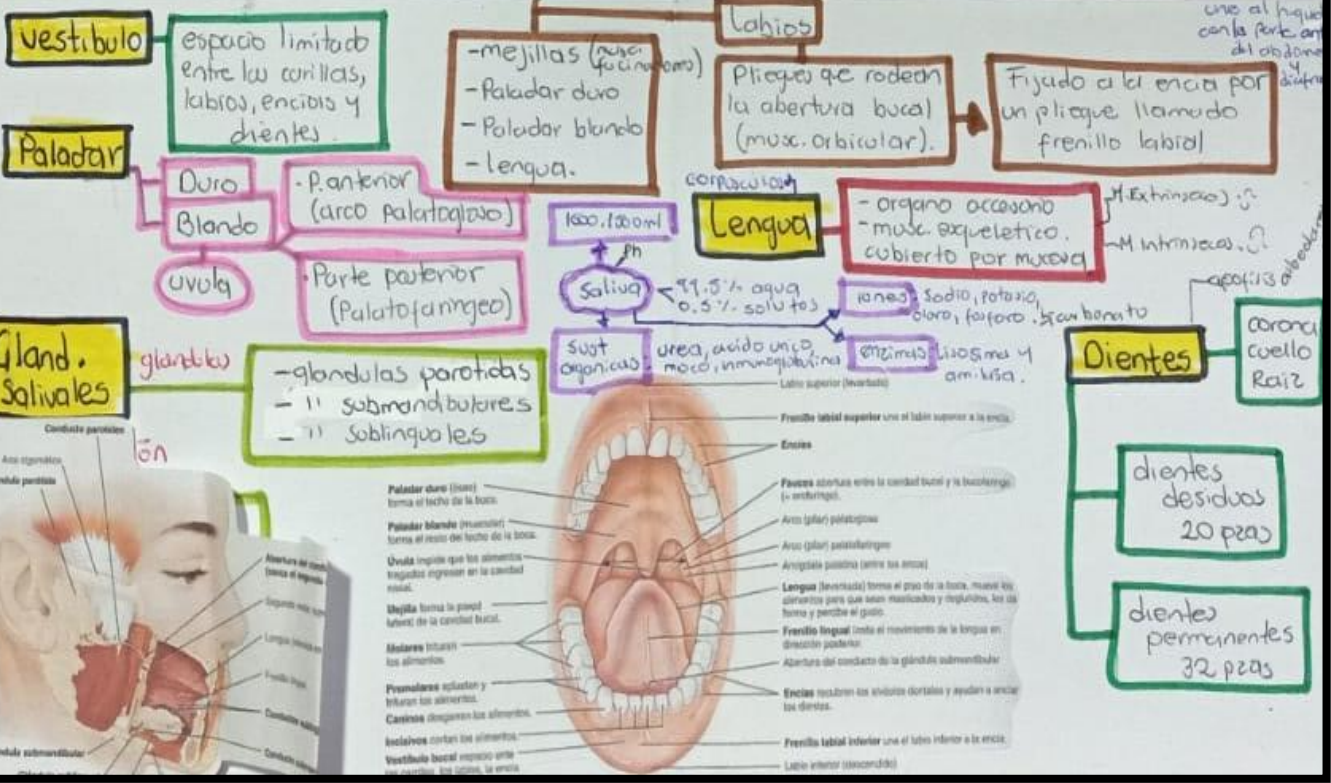 vestibulo
espacio limitado
entre las carillas,
labios, encias y
dientes.
-mejillas
-Paladar duro
-Paladar blando
-lengua.
labios
Pliegues que rodean
la abertura bucal
(musc. orbicular).
Fijado a la encia por
un pliegue llamado
frenillo labial
uno al higad
con la parte ant
del abdome
y
diafra
Paladar
Duro
Blando
uvula
·P. anterior
(arco palatogloso)
·Parte posterior
(Palatofaringeo)
corpusculos
Lengua
- organo accesorio
- musc. esqueletico.
cubierto por mucosa
M. Extrinsecos
M. Intrinsecos.
Ph
Saliva
99.5% agua
0.5% solutos
iones: sodio, potasio,
cloro, fosforo. bicarbonato
sust
organicas: urea, acido urico,
moco, inmunoglobulina
enzimas: lisosima y
amilasa.
Gland.
Salivales
glandulas
-glandulas parotidas
- " submandibulares
- " sublinguales
ón
Dientes
apofisis
corona
cuello
Raiz
dientes
desiduos
20 pzas
dientes
permanentes
32 pzas
Conducto parotídeo
Arco cigomático
ndula parótida
Abertura del
Segundo
Conducto
Conducto
ndula submandibular
Paladar duro (óseo)
forma el techo de la boca.
Paladar blando (muscular)
forma el resto del techo de la boca.
Úvula impide que los alimentos
tragados ingresen en la cavidad
nasal.
Mejilla forma la pared
lateral de la cavidad bucal.
Molares trituran
los alimentos.
Premolares aplastan y
trituran los alimentos.
Caninos desgarran los alimentos.
Incisivos cortan los alimentos.
Vestíbulo bucal espacio entre
Labio superior (levantado)
Frenillo labial superior une el labio superior a la encía.
Encías
Fauces abertura entre la cavidad bucal y la bucofaringe
(= orofaringe).
Arco (pilar) palatogloso
Arco (pilar) palatofaríngeo
Amígdala palatina (entre los arcos)
Lengua (levantada) forma el piso de la boca, mueve los
alimentos para que sean masticados y deglutidos, les da
forma y percibe el gusto.
Frenillo lingual limita el movimiento de la lengua en
dirección posterior.
Abertura del conducto de la glándula submandibular
Encías recubren los alvéolos dentales y ayudan a anclar
los dientes.
Frenillo labial inferior une el labio inferior a la encía.
Labio inferior (descendido)